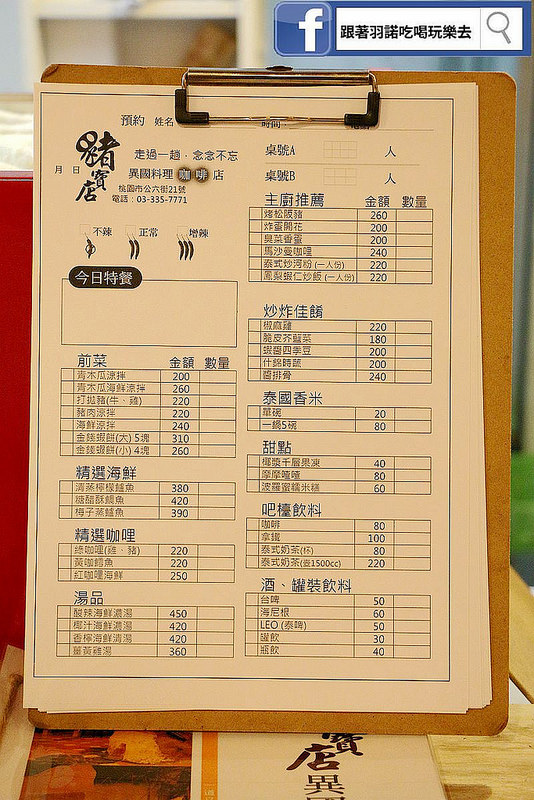 跟著羽諾吃喝玩樂去
預約 姓名
時間:
月 日
豬寶店
走過一趟,念念不忘
異國料理 咖啡 店
桃園市公六街21號
電話:03-335-7771
桌號A 人
桌號B 人
不辣 正常 增辣
今日特餐
前菜 金額 數量
青木瓜涼拌 200
青木瓜海鮮涼拌 260
打拋豬(牛、雞) 220
豬肉涼拌 220
海鮮涼拌 240
金錢蝦餅(大) 5塊 310
金錢蝦餅(小) 4塊 260
精選海鮮
清蒸檸檬鱸魚 380
糖醋酥鯛魚 420
梅子蒸鱸魚 390
精選咖哩
綠咖哩(雞、豬) 220
黃咖鱈魚 220
紅咖哩海鮮 250
湯品
酸辣海鮮濃湯 450
椰汁海鮮濃湯 420
香檸海鮮清湯 420
薑黃雞湯 360
主廚推薦 金額 數量
烤松阪豬 260
炸蛋開花 200
臭菜香蛋 200
馬沙曼咖哩 240
泰式炒河粉 (一人份) 220
鳳梨蝦仁炒飯 (一人份) 220
炒炸佳餚
椒麻雞 220
脆皮芥藍菜 180
蝦醬四季豆 200
什錦時蔬 200
醬排骨 240
泰國香米
單碗 20
一鍋5碗 80
甜點
椰漿千層果凍 40
摩摩喳喳 80
波羅蜜糯米糕 60
吧檯飲料
咖啡 80
拿鐵 100
泰式奶茶(杯) 80
泰式奶茶(壺1500cc) 220
酒、罐裝飲料
台啤 50
海尼根 60
LEO (泰啤) 50
罐飲 30
瓶飲 40
寶店
異國